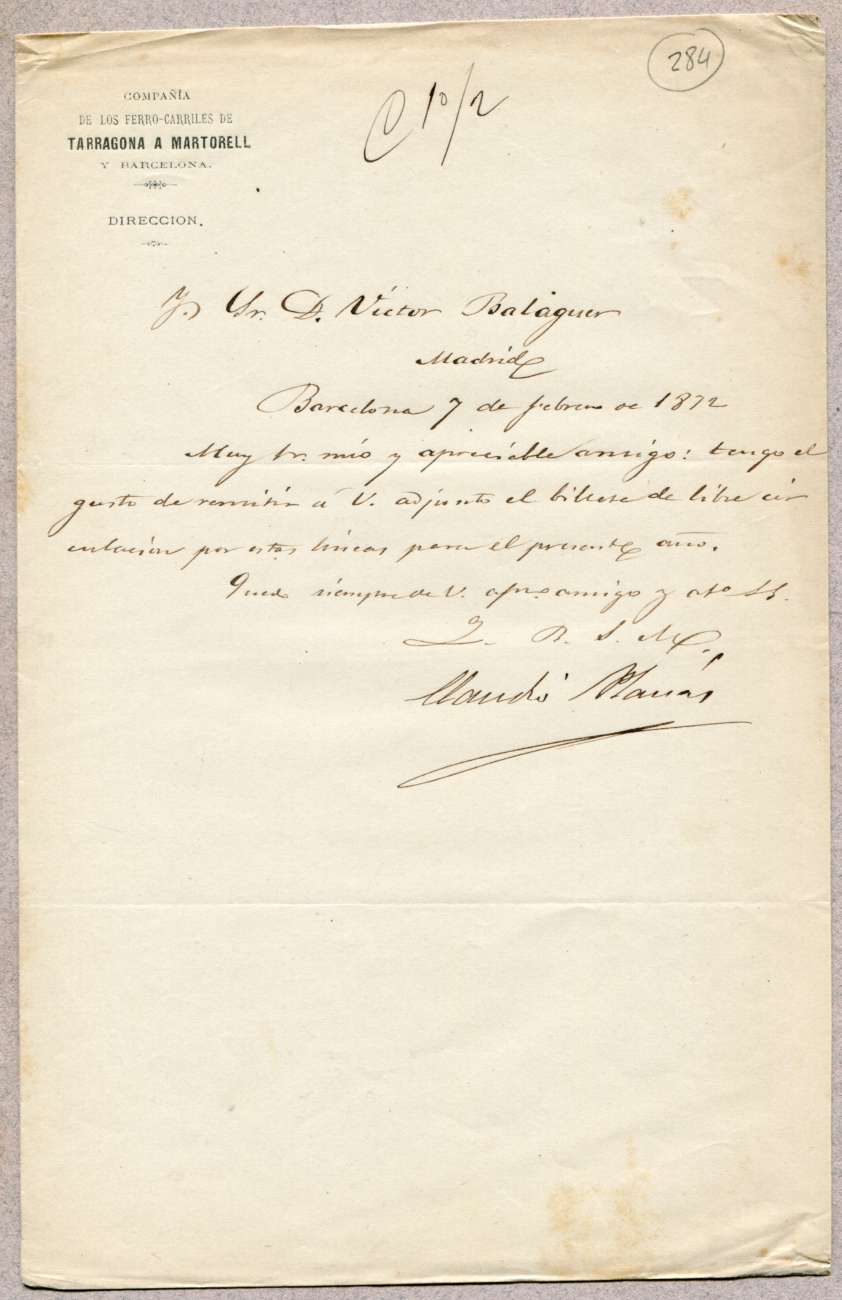 284
C 10/2
COMPAÑÍA
DE LOS FERRO-CARRILES DE
TARRAGONA A MARTORELL
Y BARCELONA.
DIRECCION.
Sr. D. Víctor Balaguer
Madrid
Barcelona 7 de febrero de 1872
Muy Sr. mío y apreciable amigo: tengo el
gusto de remitir á V. adjunto el billete de libre cir
culacion por estas lineas para el presente año.
Queda siempre de V. afmo. amigo y ato. SS.
Q. B. S. M.
Claudio Planás